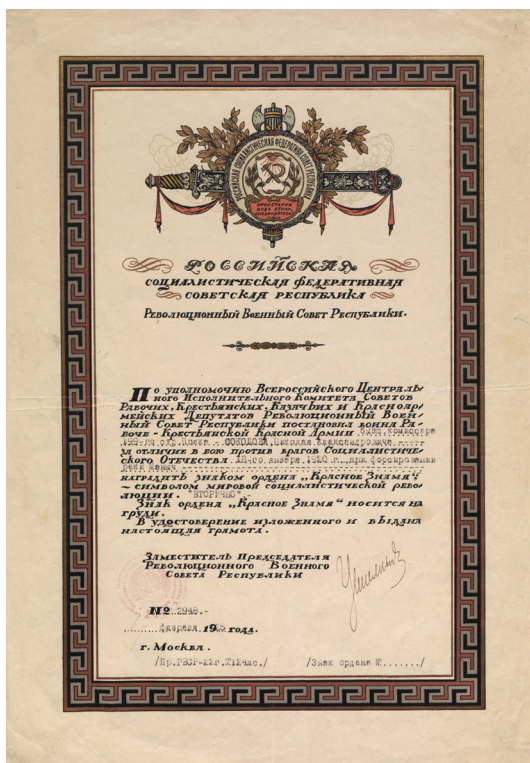 РОССИЙСКАЯ СОЦИАЛИСТИЧЕСКАЯ ФЕДЕРАТИВН. СОВЕТ. РЕСПУБЛИКА
ПРОЛЕТАРИИ
ВСЕХ СТРАН,
СОЕДИНЯЙТЕСЬ!
РОССИЙСКАЯ
СОЦИАЛИСТИЧЕСКАЯ ФЕДЕРАТИВНАЯ
СОВЕТСКАЯ РЕСПУБЛИКА
РЕВОЛЮЦИОННЫЙ ВОЕННЫЙ СОВЕТ РЕСПУБЛИКИ.
По уполномочию Всероссийского Централь-
ного Исполнительного Комитета Советов
Рабочих, Крестьянских, Казачьих и Красноар-
мейских Депутатов Революционный Воен-
ный Совет Республики постановил воина Ра-
боче-Крестьянской Красной Армии Комиссара
полка - СОКОЛОВА, Николая Александровича
за отличие в бою против врагов Социалистиче-
ского Отечества 18-го января 1920 г., при форсировании
реки Маныч
наградить знаком ордена „Красное Знамя"
~ символом мировой социалистической рево-
люции. "ВТОРИЧНО"
Знак ордена „Красное Знамя" носится на
груди.
В удостоверение изложенного и выдана
настоящая грамота.
Заместитель Председателя
Революционного Военного
Совета Республики
№ 2948.-
февраля 19 года.
г. Москва.
/Пр.РВСР-22г. /Знак ордена №......./